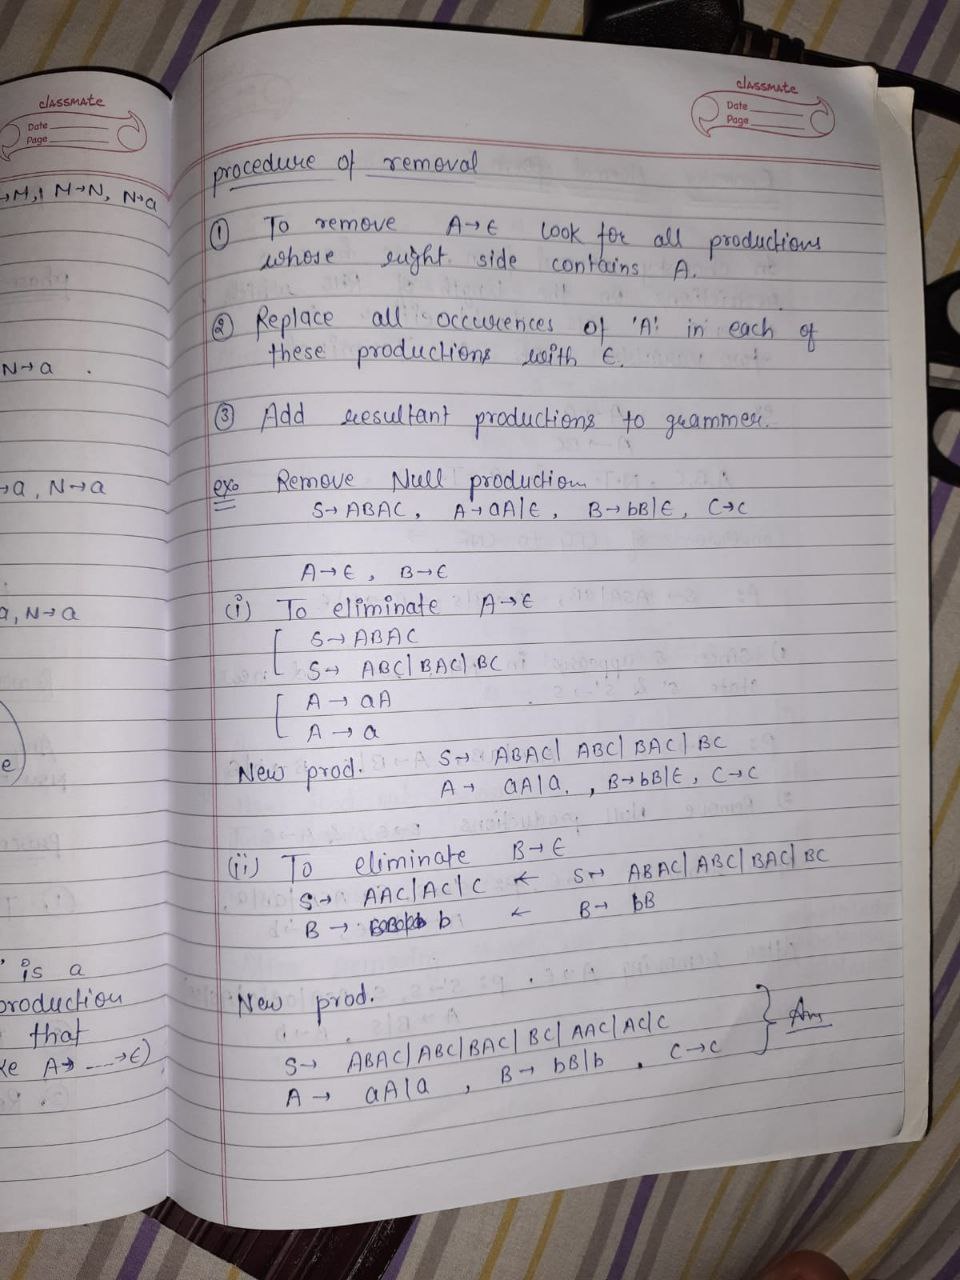 classmate
Date
Page
→M, M→N, N→a
N→a .
→a, N→a
a, N→a
e
is a
production
that
A→ ---→ϵ)
classmate
Date
Page
procedure of removal
① To remove A→ϵ look for all productions
whose right side contains A.
② Replace all occurences of 'A' in each of
these productions with ϵ.
③ Add resultant productions to grammer.
exo Remove Null production
S→ ABAC, A→aA|ϵ, B→bB|ϵ, C→c
A→ϵ, B→ϵ
(i) To eliminate A→ϵ
S→ABAC
S→ ABC|BAC|BC
A→ aA
A→ a
New prod. S→ ABAC| ABC| BAC| BC
A→ aA|a. , B→bB|ϵ, C→c
(ii) To eliminate B→ϵ
S→ AAC|AC|C ← S→ ABAC|ABC|BAC|BC
B→ b ← B→ bB
New prod.
S→ ABAC|ABC|BAC|BC|AAC|AC|C } Ans
A→ aA|a , B→ bB|b , C→c